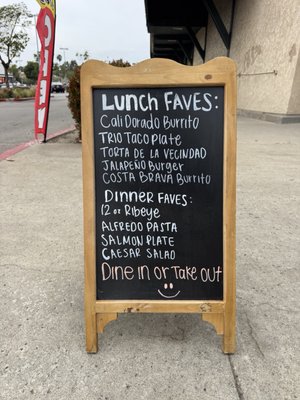 Lunch FAVES:
Cali Dorado Burrito
TRIO Taco plate
TORTA DE LA VECINDAD
JALAPEÑO Burger
COSTA BRAVA Burrito
Dinner FAVES:
12 oz Ribeye
ALFREDO PASTA
SALMON PLATE
CAESAR SALAD
Dine in or Take out